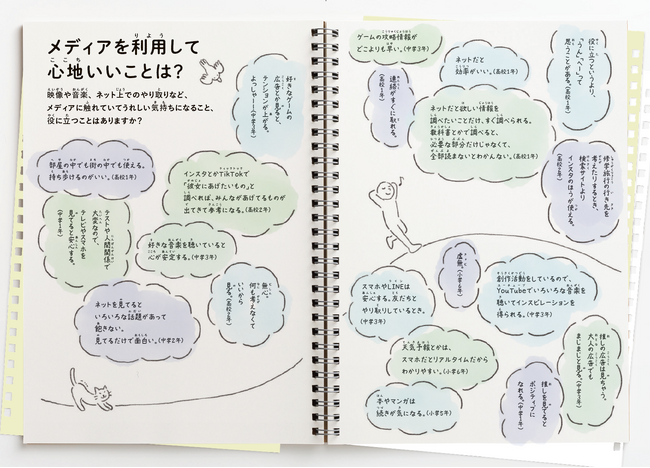 メディアを利用して
心地いいことは？
映像や音楽、ネット上でのやり取りなど、
メディアに触れていてうれしい気持ちになること、
役に立つことはありますか？
好きなゲームの
広告とか見ると、
テンションが上がる。
よっしゃー！（中学3年）
部屋の中でも街の中でも使える。
持ち歩けるのがいい。（高校1年）
インスタとかTikTokで
「彼女にあげたいもの」と
調べれば、みんながあげてるものが
出てきて参考になる。（高校2年）
テストや人間関係で
大変なので、
テレビやスマホを
見てると安心する。
（中学1年）
好きな音楽を聴いていると
心が安定する。（中学3年）
無心。
何も考えなくて
いいから
見る。（高校1年）
ネットを見てると
いろいろな話題があって
飽きない。
見てるだけで面白い。（中学2年）
ゲームの攻略情報が
どこよりも早い。（中学3年）
ネットだと
効率がいい。（高校1年）
役に立つというより、
「うん、へー」って
思うことがある。（高校1年）
連絡がすぐに取れる。
（高校1年）
ネットだと欲しい情報を
調べたいことだけ、すぐ調べられる。
教科書とかで調べると、
必要な部分だけじゃなくて、
全部読まないとわかんない。（高校1年）
修学旅行の行き先を
考えたりするとき、
検索サイトより
インスタのほうが使える。
（高校1年）
虚無。（中学6年）
スマホやLINEは
安心する。友だちと
やり取りしているとき。
（中学3年）
創作活動をしているので、
YouTubeでいろいろな音楽を
聴いてインスピレーションを
得られる。（中学3年）
天気予報とかは、
スマホだとリアルタイムだから
わかりやすい。（小学6年）
本やマンガは
続きが気になる。（小学5年）
推しを見てると
ポジティブに
なれる。（中学1年）
推しの広告は見ちゃう。
大人の広告でも
まじまじと見る。（中学3年）